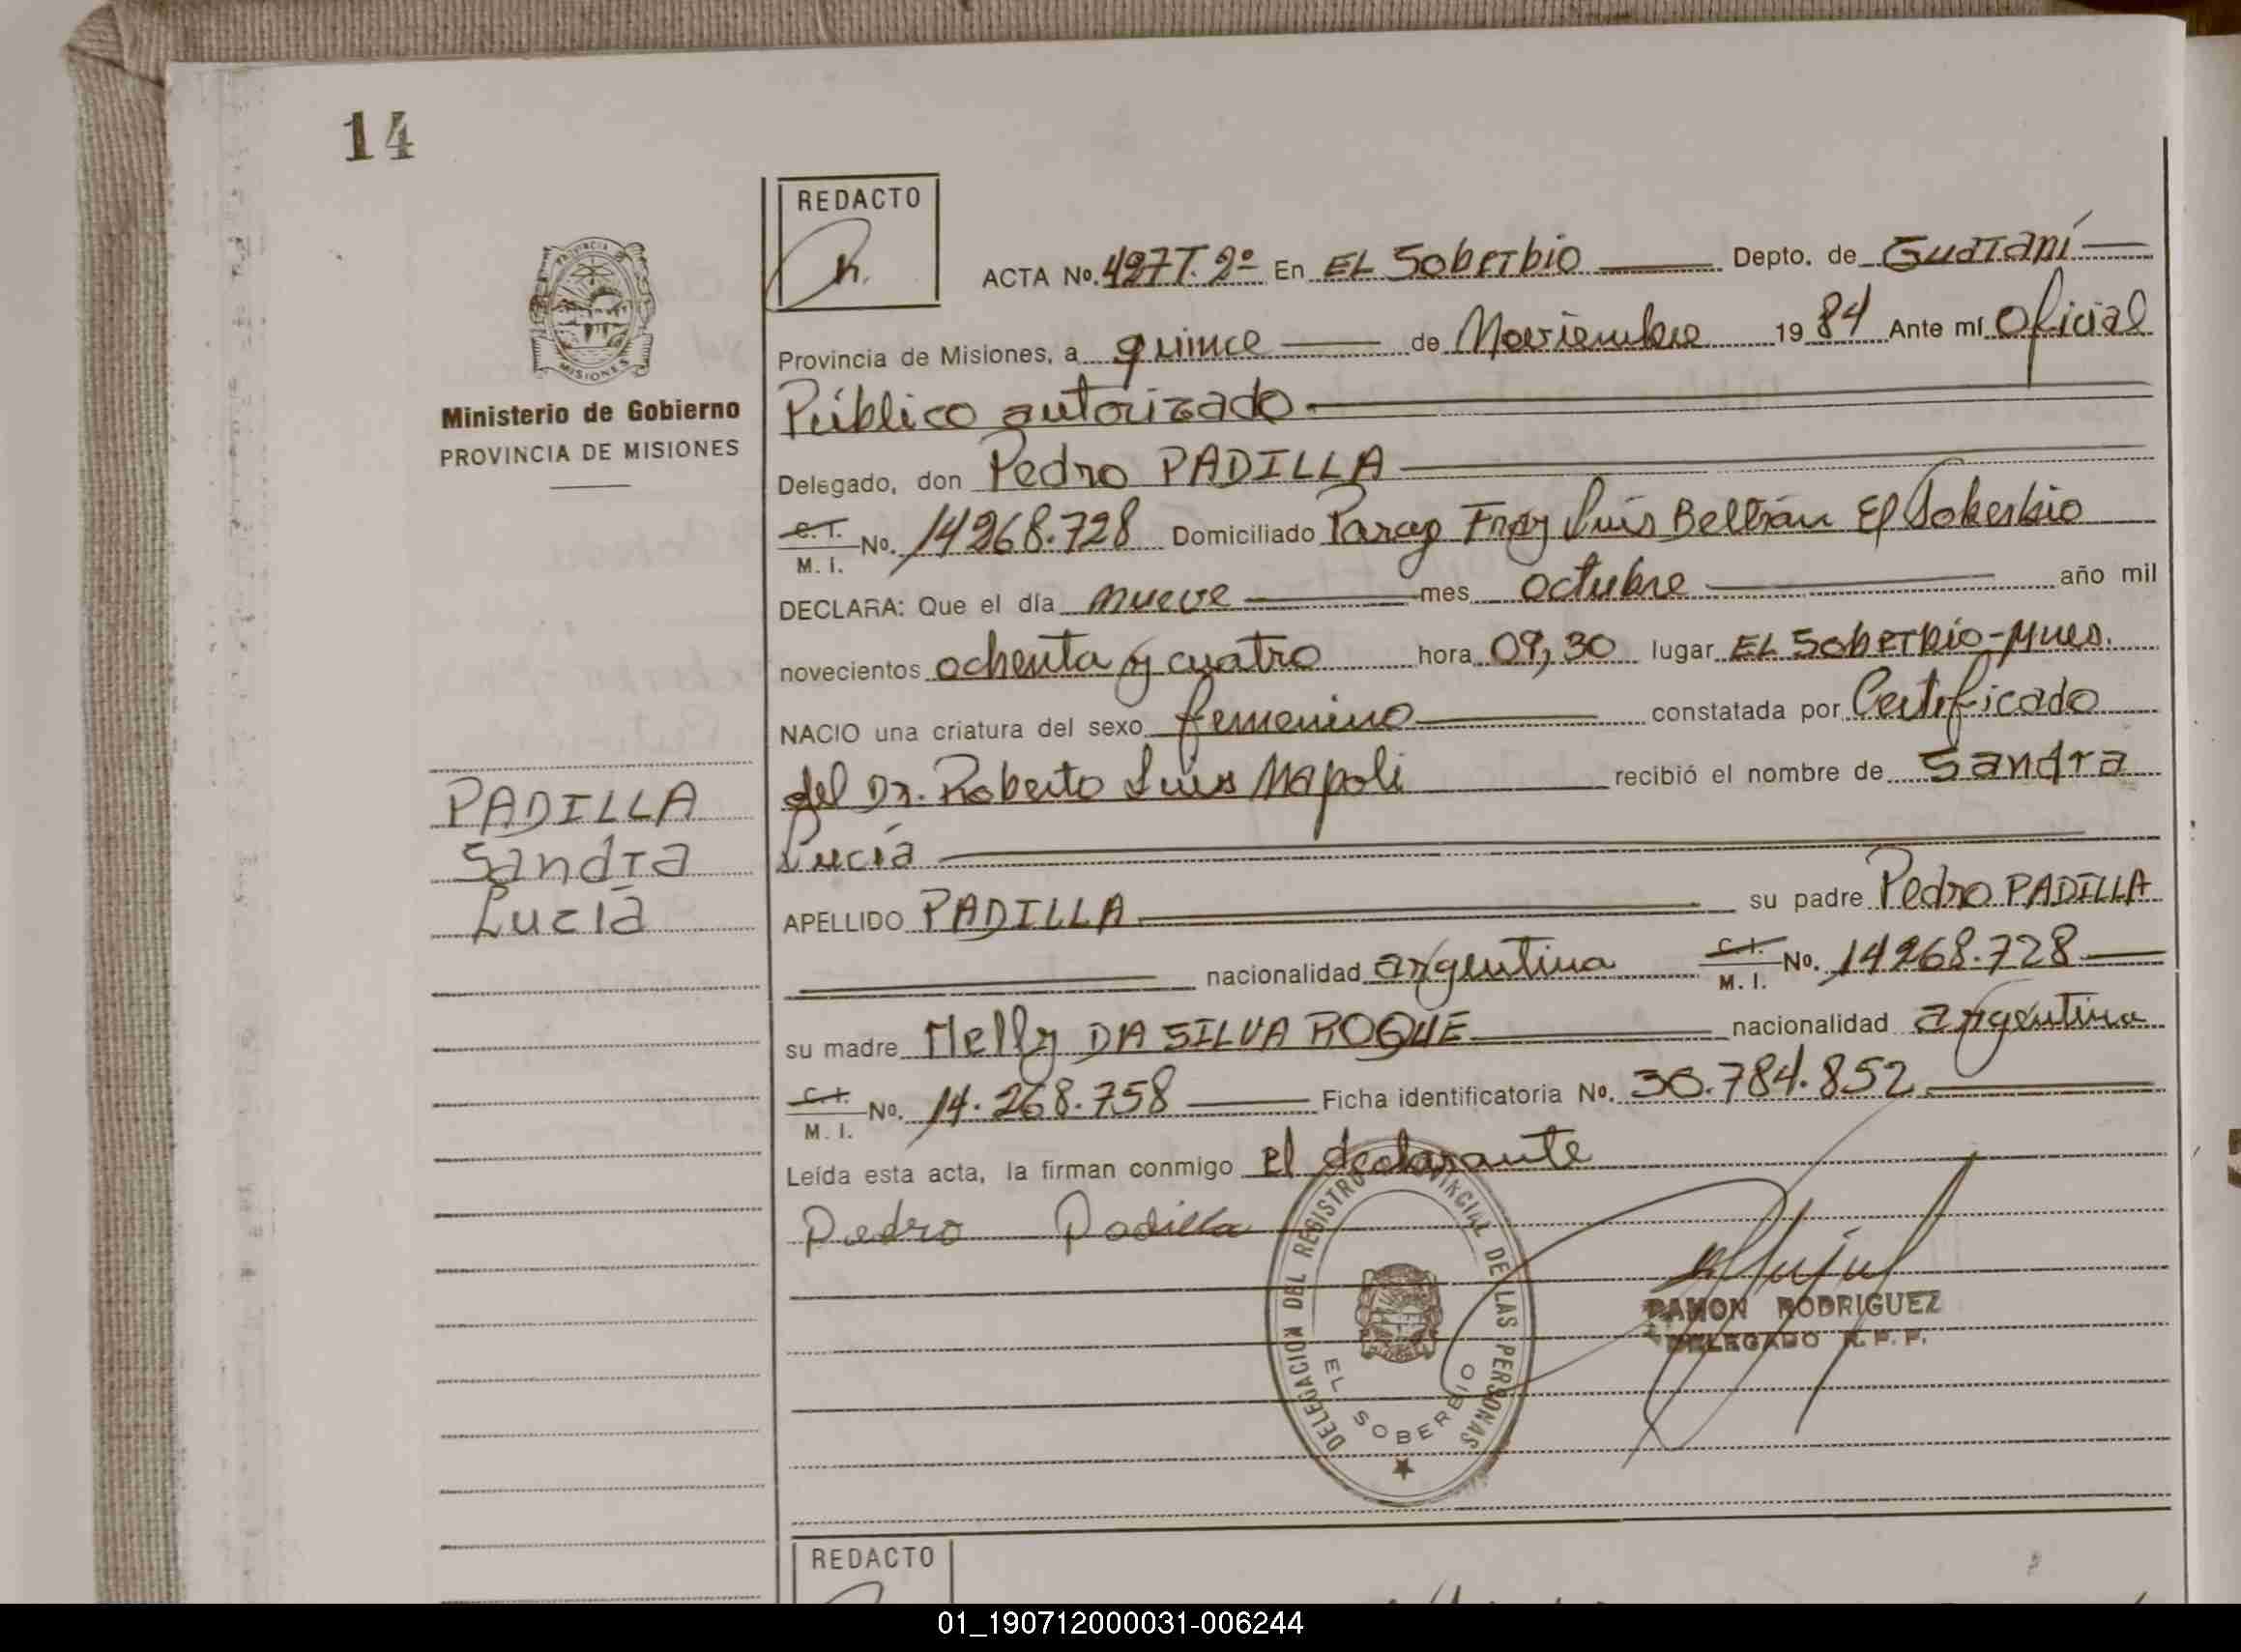 14
REDACTO
PROVINCIA
MISIONES
Ministerio de Gobierno
PROVINCIA DE MISIONES
ACTA No. 427 T. 2º En EL Soberbio Depto. de Guaraní
Provincia de Misiones, a quince de Noviembre 19 84 Ante mí Oficial
Público autorizado
Delegado, don Pedro PADILLA
C. I.
M. I. No. 14268.728 Domiciliado Paraje Fray Luis Beltrán El Soberbio
DECLARA: Que el día nueve mes octubre año mil
novecientos ochenta y cuatro hora 09,30 lugar EL Soberbio-Mnes.
NACIO una criatura del sexo femenino constatada por Certificado
del Dr. Roberto Luis Napoli recibió el nombre de Sandra
Lucía
PADILLA
Sandra
Lucía
APELLIDO PADILLA su padre Pedro PADILLA
nacionalidad argentina C. I.
M. I. No. 14268.728
su madre Nelly DA SILVA ROQUE nacionalidad argentina
C. I.
M. I. No. 14.268.758 Ficha identificatoria No. 30.784.852
Leída esta acta, la firman conmigo el declarante
Pedro Padilla
DELEGACION DEL REGISTRO PROVINCIAL DE LAS PERSONAS
EL SOBERBIO
RAMON RODRIGUEZ
DELEGADO R. P. P.
REDACTO
01_190712000031-006244